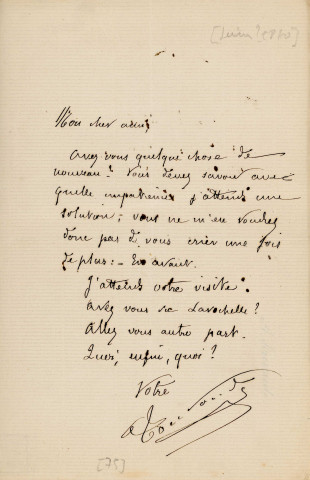 Mon cher ami,
Avez vous quelque chose de
nouveau? Vous devez savoir avec
quelle impatience j'attends une
solution; vous ne m'en voudrez
donc pas de vous crier une fois
de plus: – En avant.
J'attends votre visite.
Avez vous vu Larochelle?
Allez vous autre part.
Quoi, enfin, quoi?
Votre
[75]